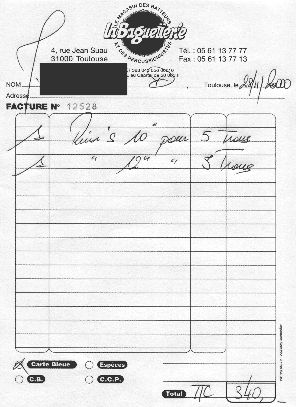 LE MAGASIN DES BATTEURS
la Baguetterie
ET DES PERCUSSIONNISTES
4, rue Jean Suau
31000 Toulouse
Tél. : 05 61 13 77 77
Fax : 05 61 13 77 13
NOM
Toulouse, le 28/11/2000
Adresse
FACTURE N° 12528
1 10" pour 5
1 " 12" " 5
Carte Bleue Espèces
C.B. C.C.P.
Total TTC 340